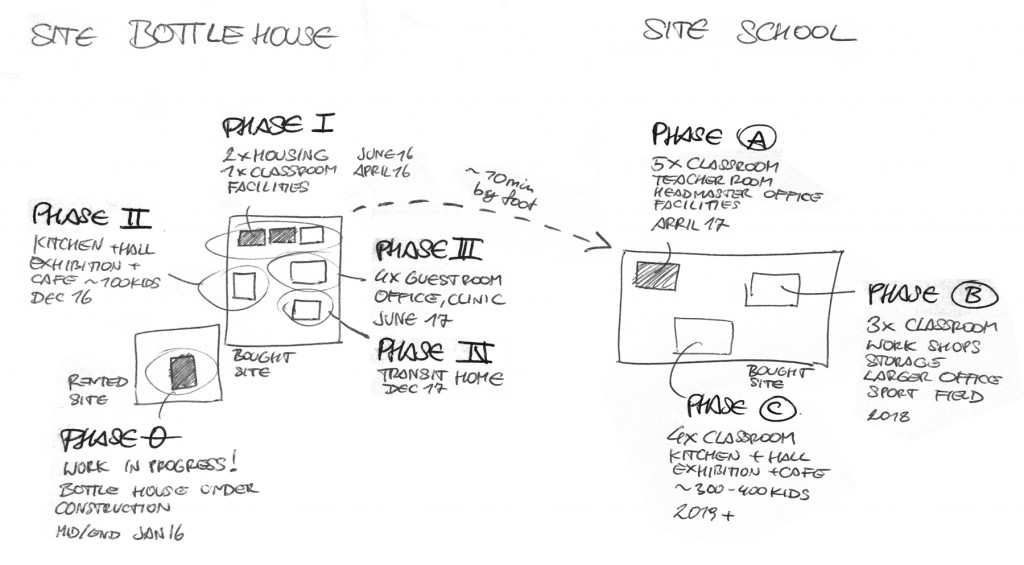 SITE BOTTLEHOUSE
PHASE I
2xHOUSING JUNE16
1xCLASSROOM APRIL16
FACILITIES
PHASE II
KITCHEN +HALL
EXHIBITION +
CAFE ~100KIDS
DEC 16
PHASE III
4xGUESTROOM
OFFICE, CLINIC
JUNE 17
PHASE IV
TRANSIT HOME
DEC 17
BOUGHT
SITE
RENTED
SITE
PHASE 0
WORK IN PROGRESS!
BOTTLE HOUSE UNDER
CONSTRUCTION
MID/END JAN16
~10min
by foot
SITE SCHOOL
PHASE A
5xCLASSROOM
TEACHER ROOM
HEADMASTER OFFICE
FACILITIES
APRIL 17
PHASE B
3xCLASSROOM
WORK SHOPS
STORAGE
LARGER OFFICE
SPORT FIELD
2018
BOUGHT
SITE
PHASE C
4xCLASSROOM
KITCHEN + HALL
EXHIBITION +CAFE
~300-400KIDS
2019+